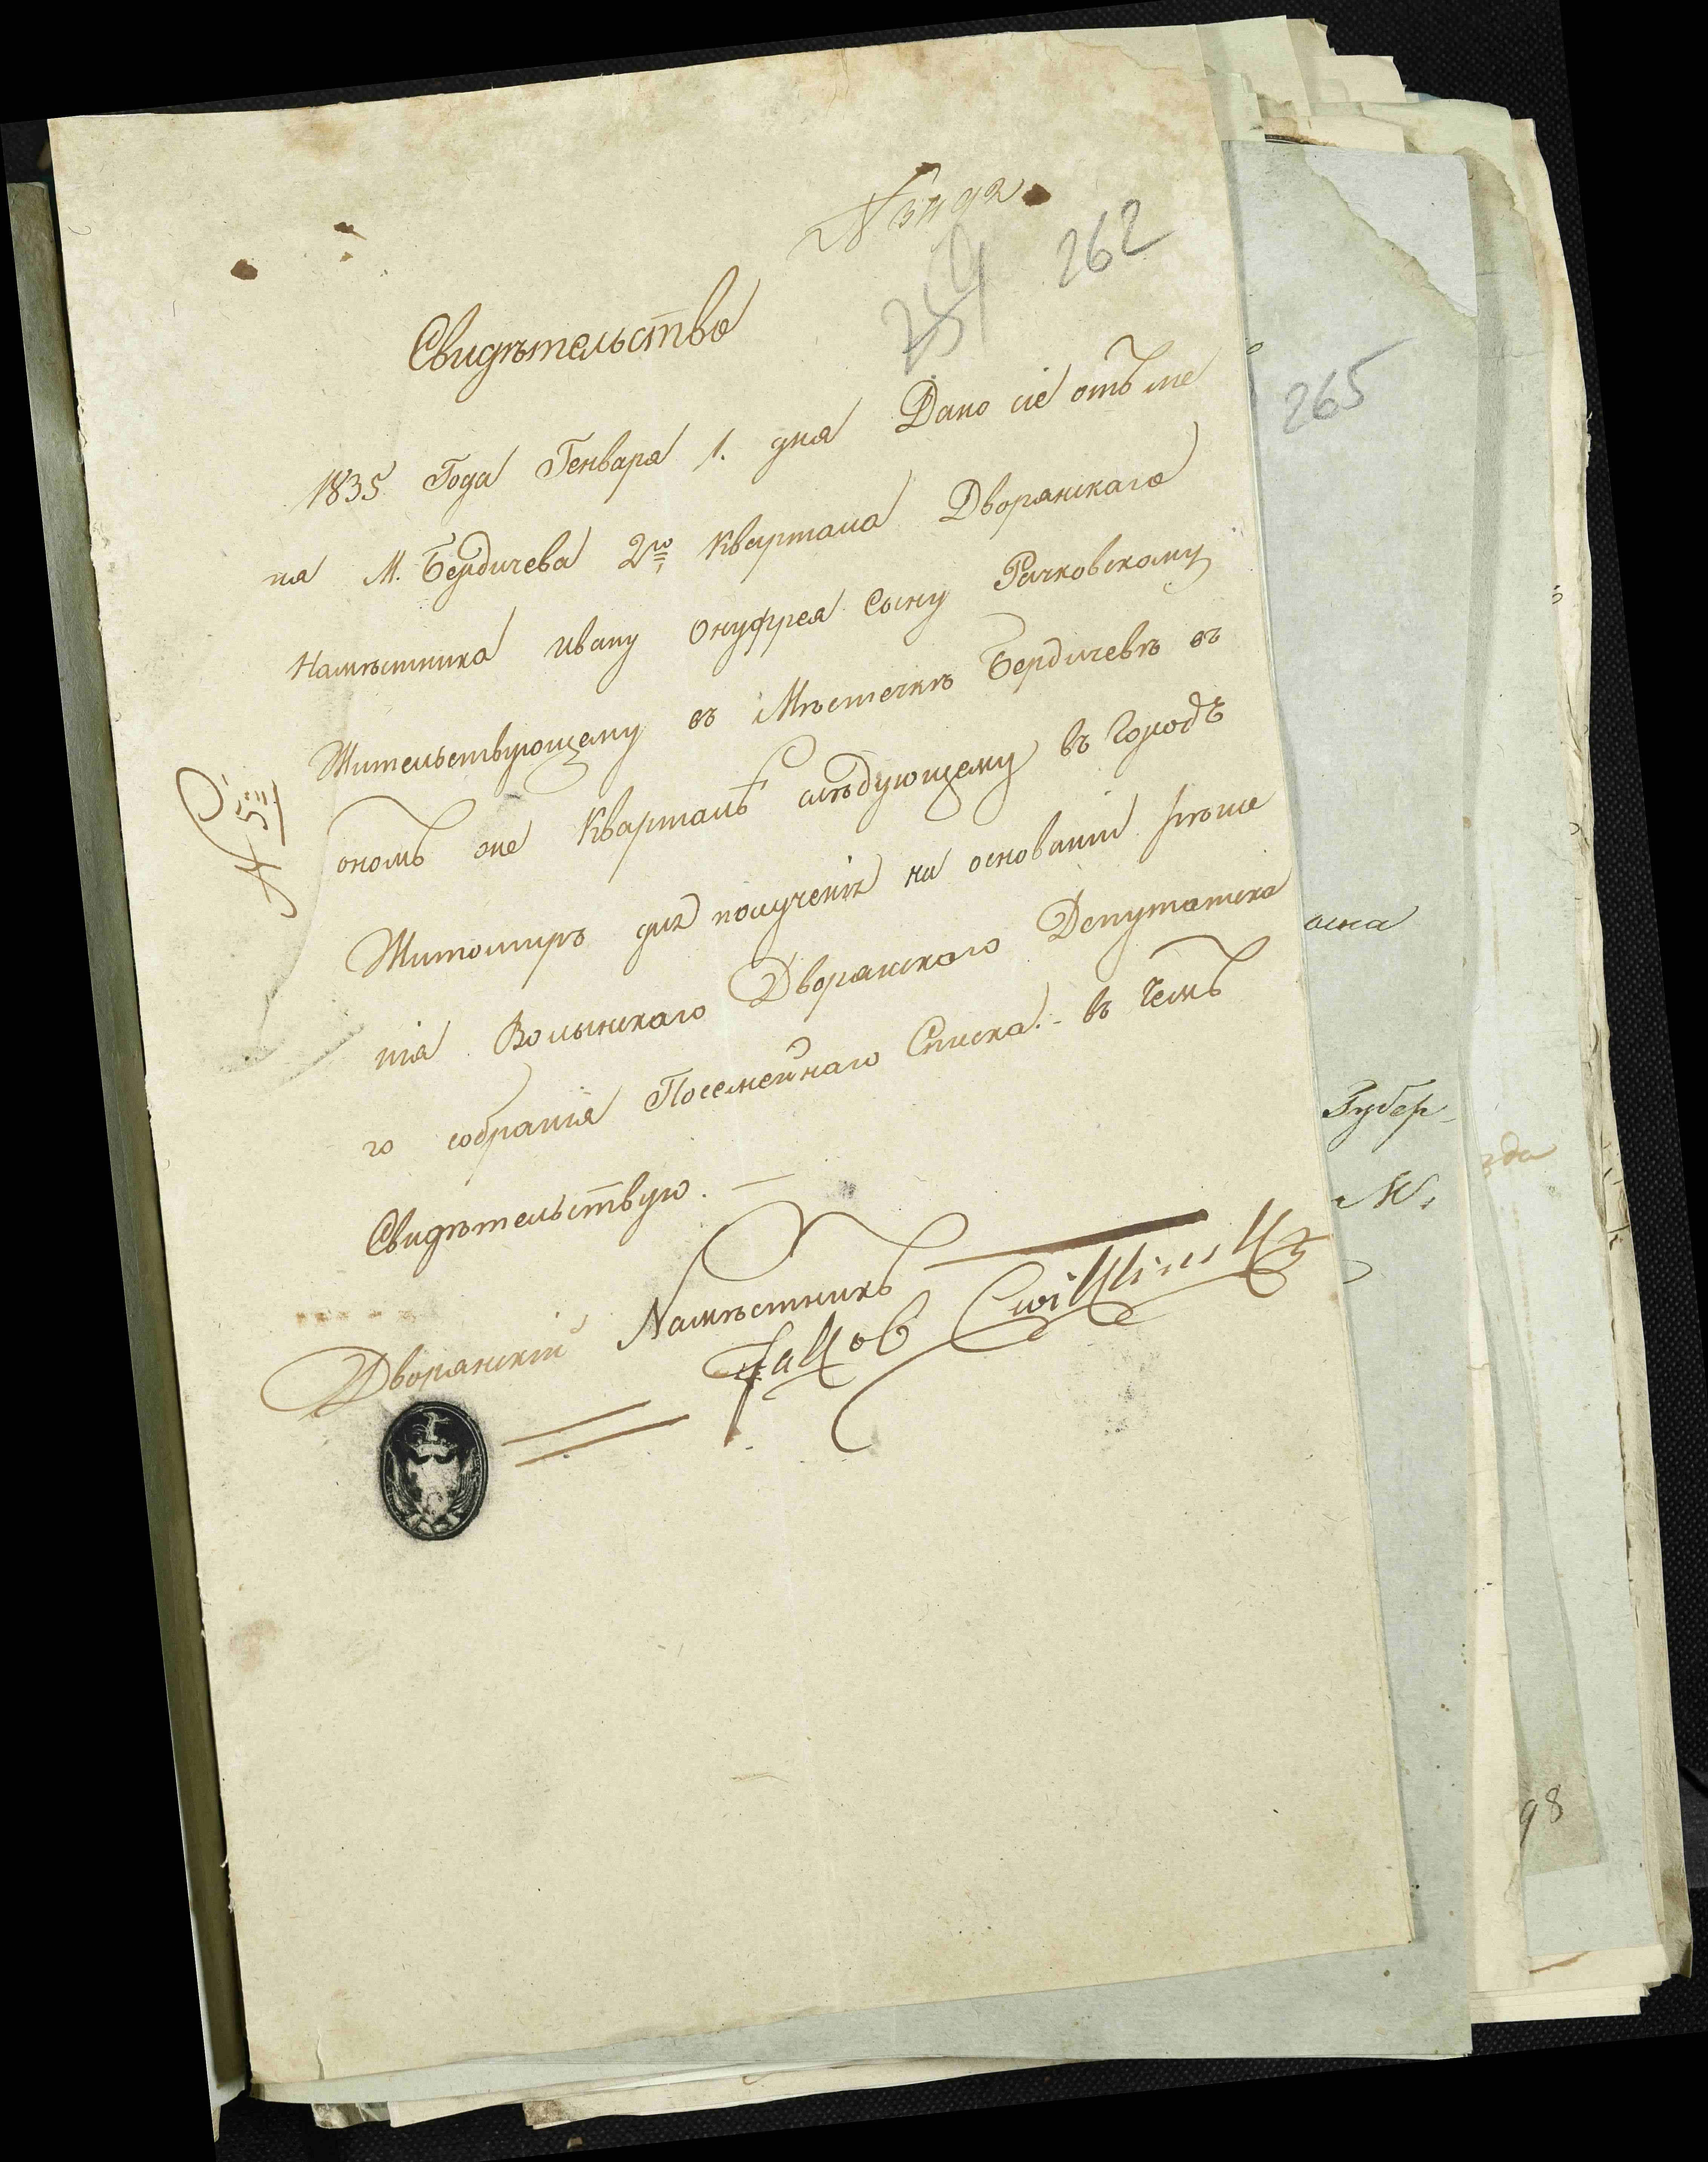 262
259
265
Свидѣтельство
1835 Года Генваря 1. дня Дано сіе отъ ме
ня М. Бердичева 2го Квартала Дворянскаго
Намѣстника Ивану Онуфрея Сыну Рачковскому
Жительствующему въ Мѣстечкѣ Бердичевѣ въ
ономъ же Кварталѣ слѣдующему въ Городъ
Житомиръ для полученія на основаніи рѣше
нія Волынскаго Дворянского Депутатска
го собранія Посемейнаго Списка. - въ чемъ
Свидѣтельствую. —
Дворянскій Намѣстникъ
№ 5й
Губер
М.
98